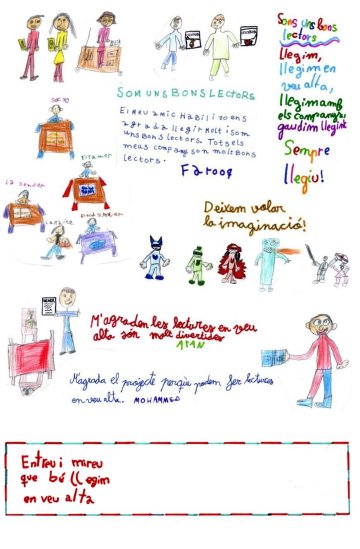 Sons uns bons
lectors
Llegim,
llegim en
veu alta,
llegim amb
els companys,
gaudim llegint
Sempre
llegiu!
SOM UNS BONS LECTORS
El meu amic Habil i zo ens
agrada llegir molt i som
uns bons lectors. Tots els
meus companys son molt bons
lectors.
Farooq
Deixem volar
la imaginació!
M'agraden les lectures en veu
alta són molt divertides
AYAN
M'agrada el projecte perquè podem fer lectures
en veu alta. MOHAMMED
Entreu i mireu
que bé llegim
en veu alta